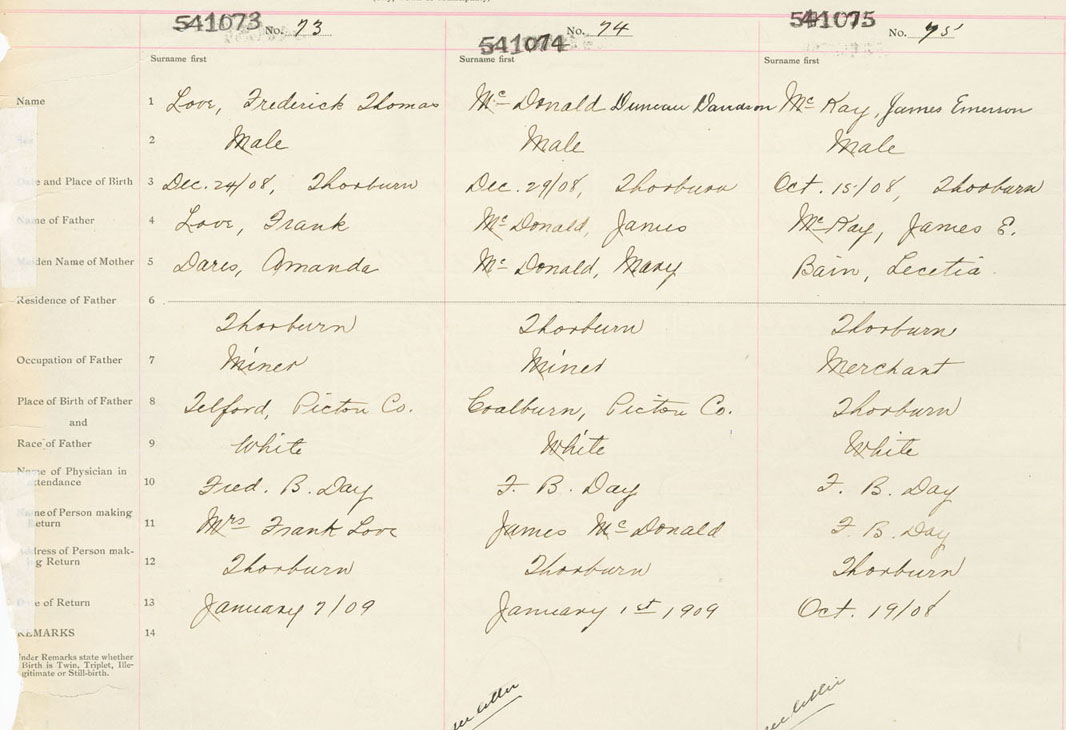 541073 No. 73
541074 No. 74
541075 No. 75
Surname first Surname first Surname first
Name 1 Love, Frederick Thomas Mc Donald Duncan Davidson Mc Kay, James Emerson
2 Male Male Male
Date and Place of Birth 3 Dec. 24/08, Thorburn Dec. 29/08, Thorburn Oct. 15/08, Thorburn
Name of Father 4 Love, Frank Mc Donald, James Mc Kay, James E.
Maiden Name of Mother 5 Dares, Amanda Mc Donald, Mary Bain, Lecetia
Residence of Father 6
Thorburn Thorburn Thorburn
Occupation of Father 7 Miner Miner Merchant
Place of Birth of Father 8 Telford, Pictou Co. Coalburn, Pictou Co. Thorburn
and
Race of Father 9 White White White
Name of Physician in
attendance 10 Fred. B. Day F. B. Day F. B. Day
Name of Person making
Return 11 Mrs Frank Love James Mc Donald F. B. Day
Address of Person mak-
ing Return 12 Thorburn Thorburn Thorburn
Date of Return 13 January 7/09 January 1st 1909 Oct. 19/08
REMARKS 14
Under Remarks state whether
Birth is Twin, Triplet, Ille-
gitimate or Still-birth.